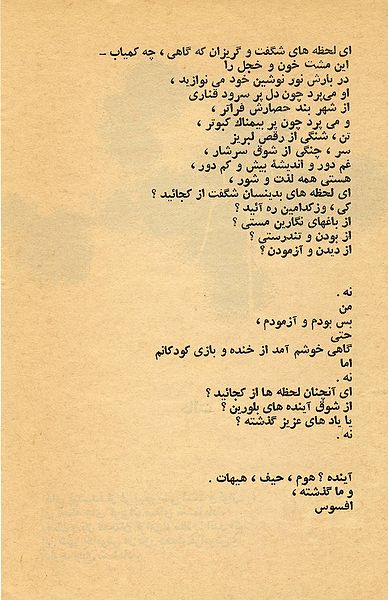 ای لحظه های شگفت و گریزان که گاهی ، چه کمیاب –
این مشت خون و خجل را
در بارش نور نوشین خود می نوازید ،
او می‌پرد چون دل پر سرود قناری
از شهر بند حصارش فراتر ،
و می پرد چون پر بیمناك کبوتر ،
تن ، شنگی از رقص لبریز
سر ، چنگی از شوق سرشار ،
غم دور و اندیشهٔ بیش و کم دور ،
هستی همه لذت و شور ،
ای لحظه های بدینسان شگفت از کجائید ؟
کی ، وز کدامین ره آئید ؟
از باغهای نگارین مستی ؟
از بودن و تندرستی ؟
از دیدن و آزمودن ؟
نه .
من
بس بودم و آزمودم ،
حتی
گاهی خوشم آمد از خنده و بازی کودکانم
اما
نه .
ای آنچنان لحظه ها از کجائید ؟
از شوق آینده های بلورین ؟
یا یاد های عزیز گذشته ؟
نه .
آینده ؟ هوم ، حیف ، هیهات .
و ما گذشته ،
افسوس